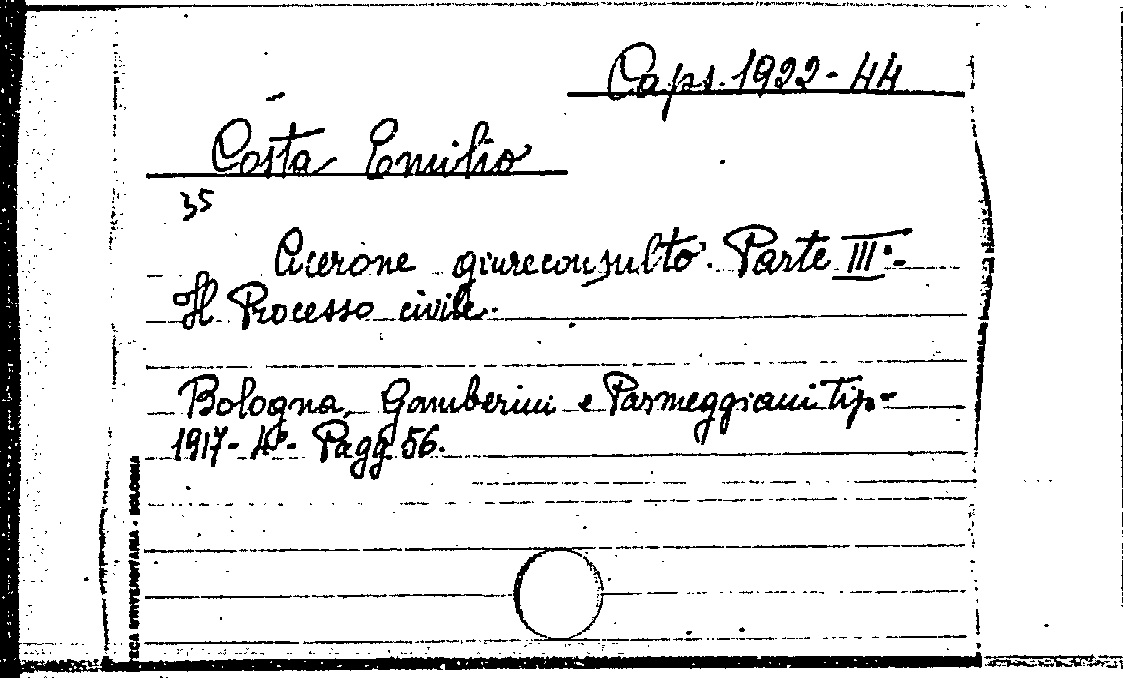 Caps. 1922-44
Costa Emilio
35
Cicerone giureconsulto. Parte III.-
Il Processo civile.
Bologna, Gamberini e Parmeggiani Tip-
1917- 4º- Pagg 56.
ECA UNIVERSITARIA - BOLOGNA